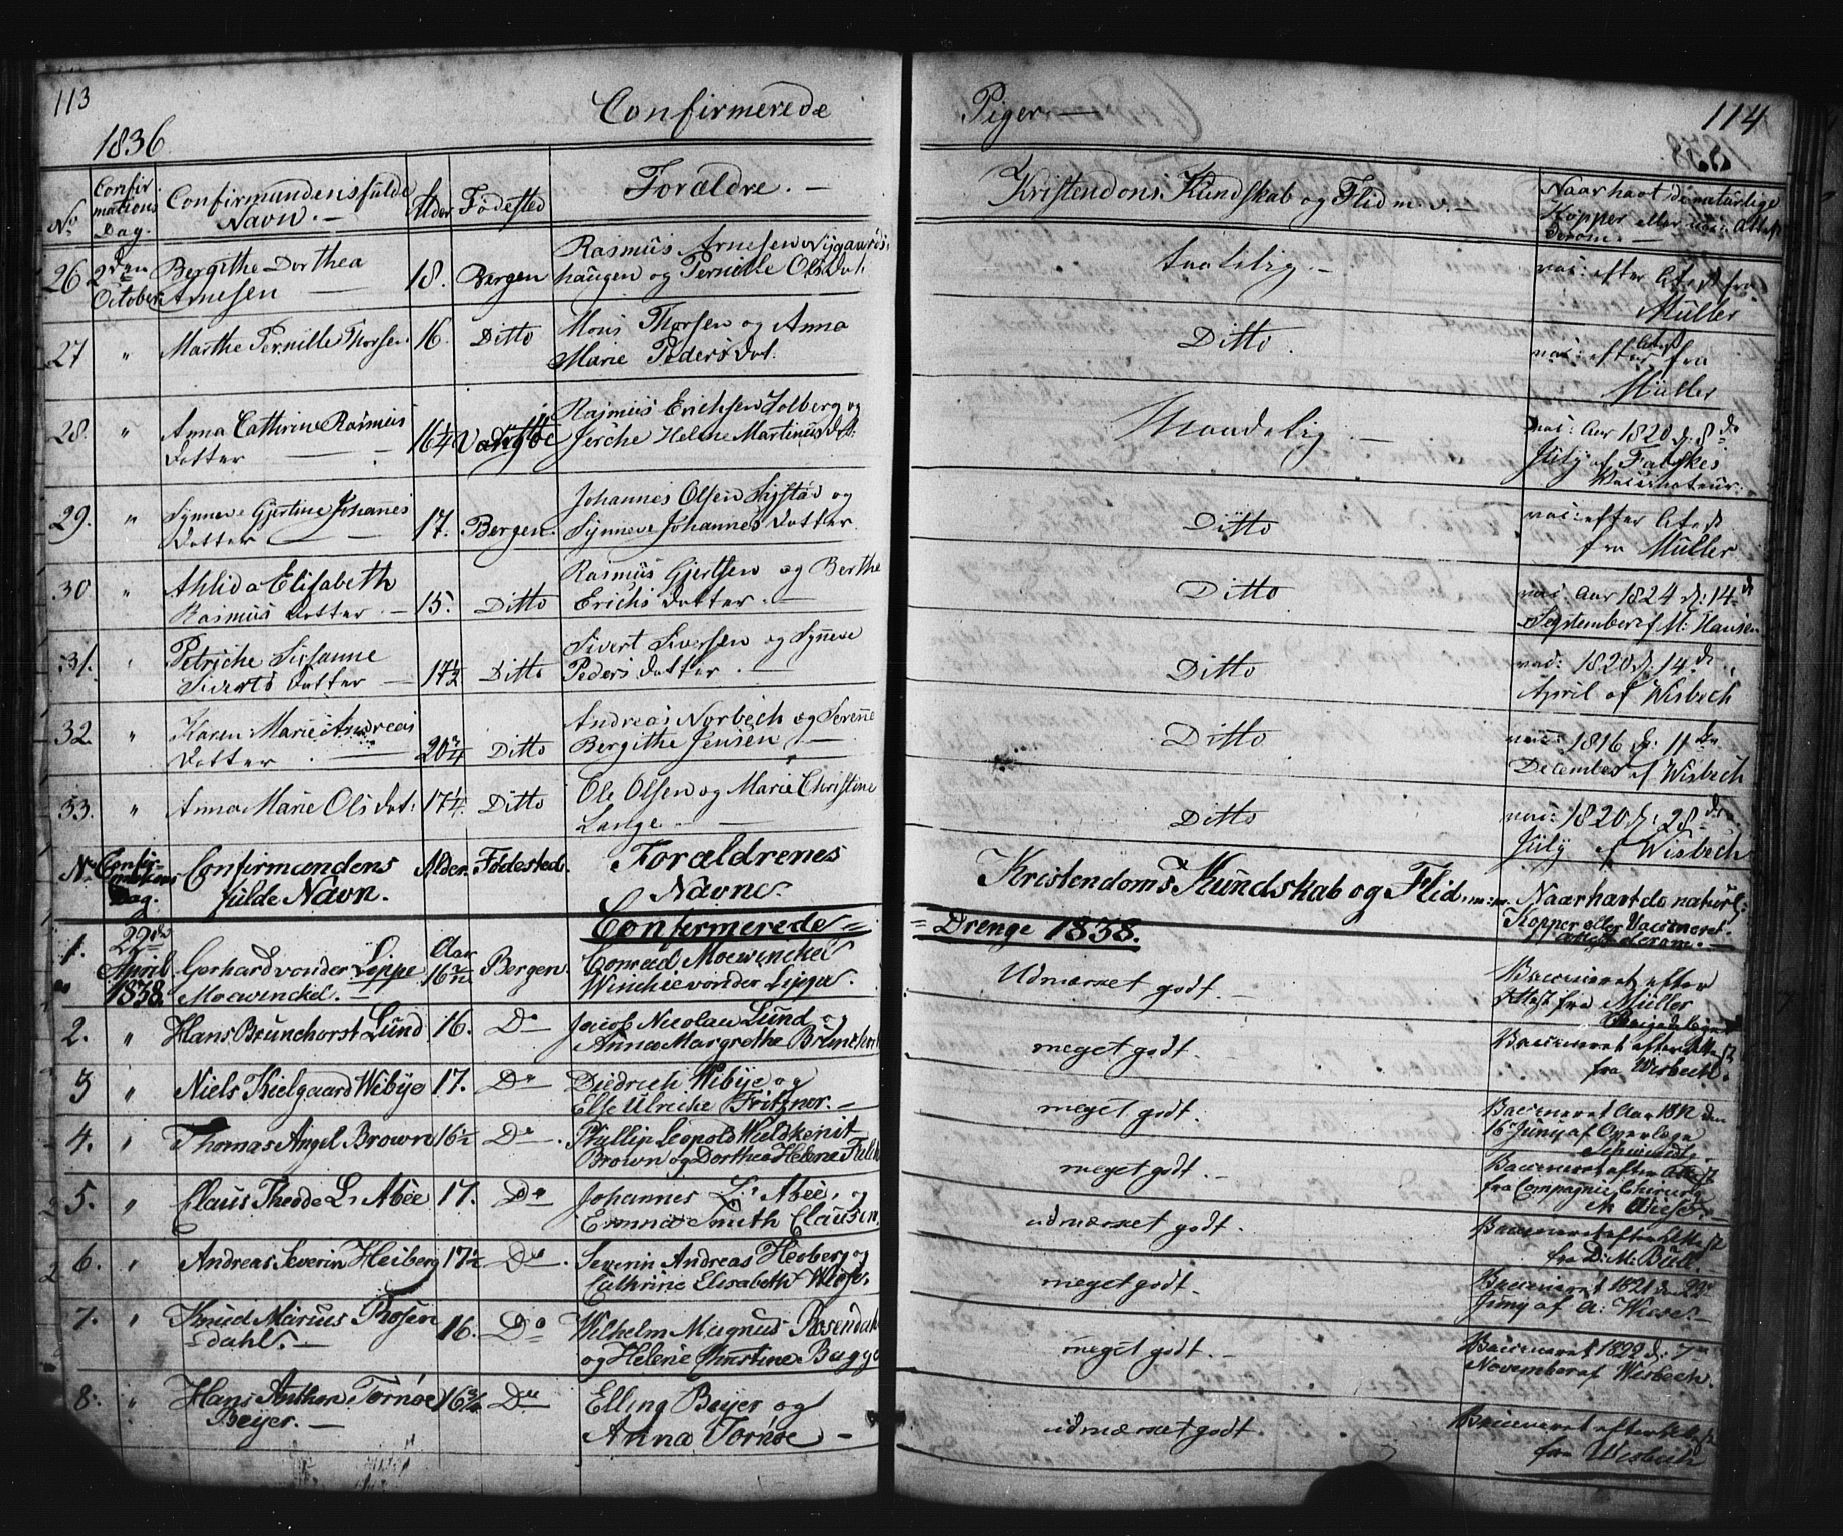 113
Confirmerede
Piger.—
114
1836
No
Confir
mations
Dag.
Confirmandens fulde
Navn.—
Alder
Fødested
Forældre.—
Kristendoms Kundskab og Flid m. v.—
Naar havt de naturlige
Kopper eller
derom.—
26
2den
October
Bergithe Dorthea
Arnesen
18.
Bergen
Rasmus Arnesen Nygaards
haugen og Pernille Olsdat:
taalelig.—
vac: efter Attest fra
Müller
27
"
Marthe Pernille Thorsen
16.
Ditto
Mons Thorsen og Anna
Marie Pedersdat.
Ditto.
vac: efter Attest fra
Müller
28.
"
Anna Cathrine Rasmus
Datter
16¼
Rasmus Erichsen Solberg og
Jirche Helene Martinusdat:
Maadelig.—
vac: Aar 1820 d. 8de
July af
Vaccinateur.
29.
"
Synneve Gjertine Johannes
Datter
17.
Bergen.
Johannes Olsen og
Synneve Johannes Datter.
Ditto
vac: efter Attest
fra Müller
30
"
Ahlida Elisabeth
Rasmus Datter.—
15.
Ditto
Rasmus Gjertsen og Berthe
Erichs Datter.—
Ditto
vac: Aar 1824 d: 14de
September af M: Hansen
31.
"
Petriche Susanne
Siverts Datter—
17½
Ditto
Sivert Siversen og Synneve
Peders Datter.—
Ditto
vac: 1820 d. 14de
April af Wisbech
32.
"
Karen Marie Andreas
Datter.—
20¾
Ditto
Andreas Norbech og Serene
Bergithe Jensen.—
Ditto
vac: 1816 d: 11te
December af Wisbech
33.
"
Anna Marie Olsdat:
17¼
Ditto
Ole Olsen og Marie Christine
Lange.—
Ditto
vac: 1820 d: 28de
July af Wisbech
No
Confir-
mations
Dag.
Confirmandens
fulde Navn.
Alder.
Fødested.
Forældrenes
Navne.
Kristendoms Kundskab og Flid m: m:
Naar havt de naturl:
Kopper eller Vaccineret
attest derom.—
Confirmerede=
=Drenge 1838.
1.
22de
April
1838.
Gerhard vonder Lippe
Moewinckel.—
Aar
16½
Bergen.
Conrad Moewinckel
Winchie vonder Lippe.
Udmærket godt.—
Vaccineret efter
Attest fra Müller
2.
"
Hans Brunchorst Lund
16.
Do
Jacob Nicolau Lund og
Anna Margrethe
meget godt.
Vaccineret efter Attest
fra Wisbech.
3
"
Niels Kielgaard Wibye
17.
Do
Diedrich Wibye og
Else Ulriche Fritzner.—
meget godt.
Vaccineret Aar den
16 Juny af Overlæge
4.
"
Thomas Angel Brown
16½
Do
Phillip Leopold
Brown og Dorthea Helene
meget godt.—
Vaccineret efter Attest
fra Compagnie Chirurg
A Wiese.—
5.
"
Claus Theode L. Abée
17.
Do
Johannes L. Abée, og
Emna Smith Clausen
udmærket godt.
Vaccineret efter Attest
fra D: M: Büll.
6.
"
Andreas Severin Heiberg
17½
Do
Severin Andreas Heiberg og
Cathrine Elisabeth Wiese.
meget godt.
Vaccineret 1821 den 29de
Juny af A: Wiese.—
7.
"
Knud Marius Rosen
dahl.—
16.
Do
Wilhelm Magnus Rosendahl
og Helene Christine Bagge
meget godt.—
Vaccineret 1822 d: 7de
November af Wisbech.
8.
"
Hans Anthon Tornøe
Beyer.—
16¾
Do
Elling Beyer og
Anna Tornøe—
udmærket godt.
Vaccineret efter Attest
fra Wisbech